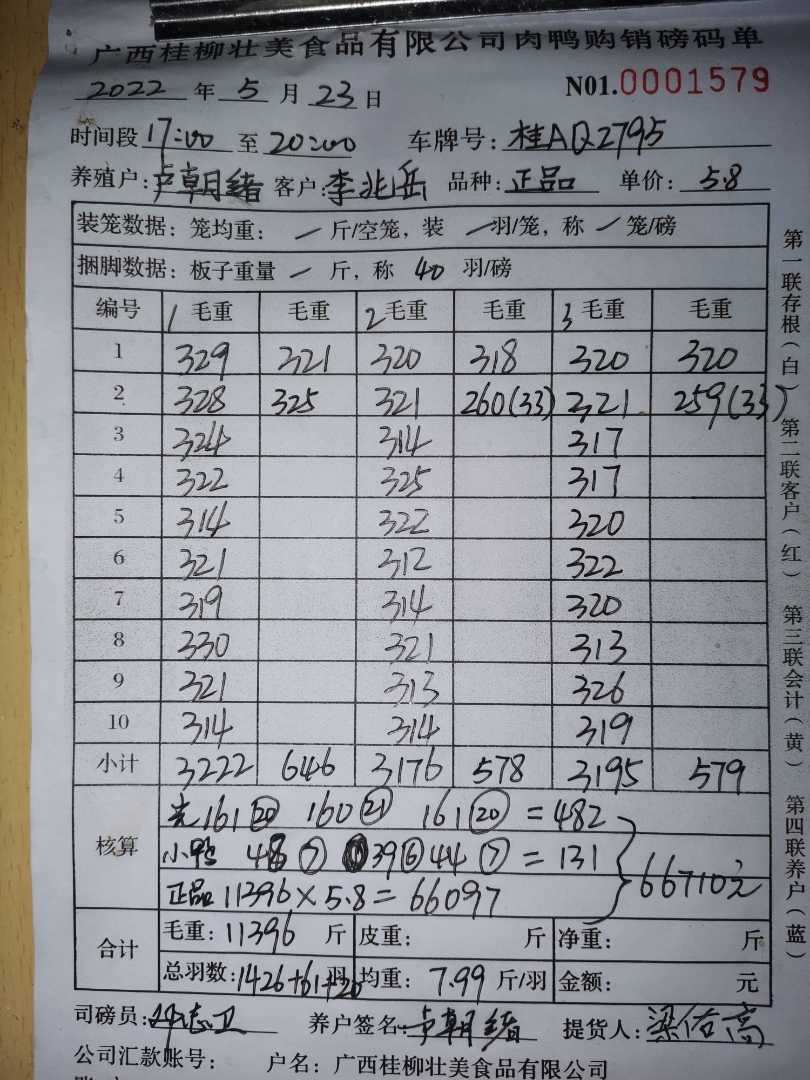 广西桂柳壮美食品有限公司肉鸭购销磅码单
2022 年 5 月 23 日 N01.0001579
时间段 17:00 至 20:00 车牌号: 桂AQ2795
养殖户: 卢朝绪 客户: 李兆岳 品种: 正品 单价: 5.8
装笼数据: 笼均重: / 斤/空笼, 装 / 羽/笼, 称 / 笼/磅
捆脚数据: 板子重量 / 斤, 称 40 羽/磅
编号 1 毛重 毛重 2 毛重 毛重 3 毛重 毛重
1 329 321 320 318 320 320
2 328 325 321 260(33) 321 259(33)
3 324 314 317
4 322 325 317
5 314 322 320
6 321 312 322
7 319 314 320
8 330 321 313
9 321 313 326
10 314 314 319
小计 3222 646 3176 578 3195 579
核算
161(20) 160(21) 161(20) = 482
小鸭 48(7) 39(6) 44(7) = 131
正品 11396 × 5.8 = 66097
66710元
合计 毛重: 11396 斤 皮重: 斤 净重: 斤
总羽数: 1426+61+20 羽 均重: 7.99 斤/羽 金额: 元
司磅员: 养户签名: 卢朝绪 提货人: 梁佑高
公司汇款账号: 户名: 广西桂柳壮美食品有限公司
第一联存根(白) 第二联客户(红) 第三联会计(黄) 第四联养户(蓝)